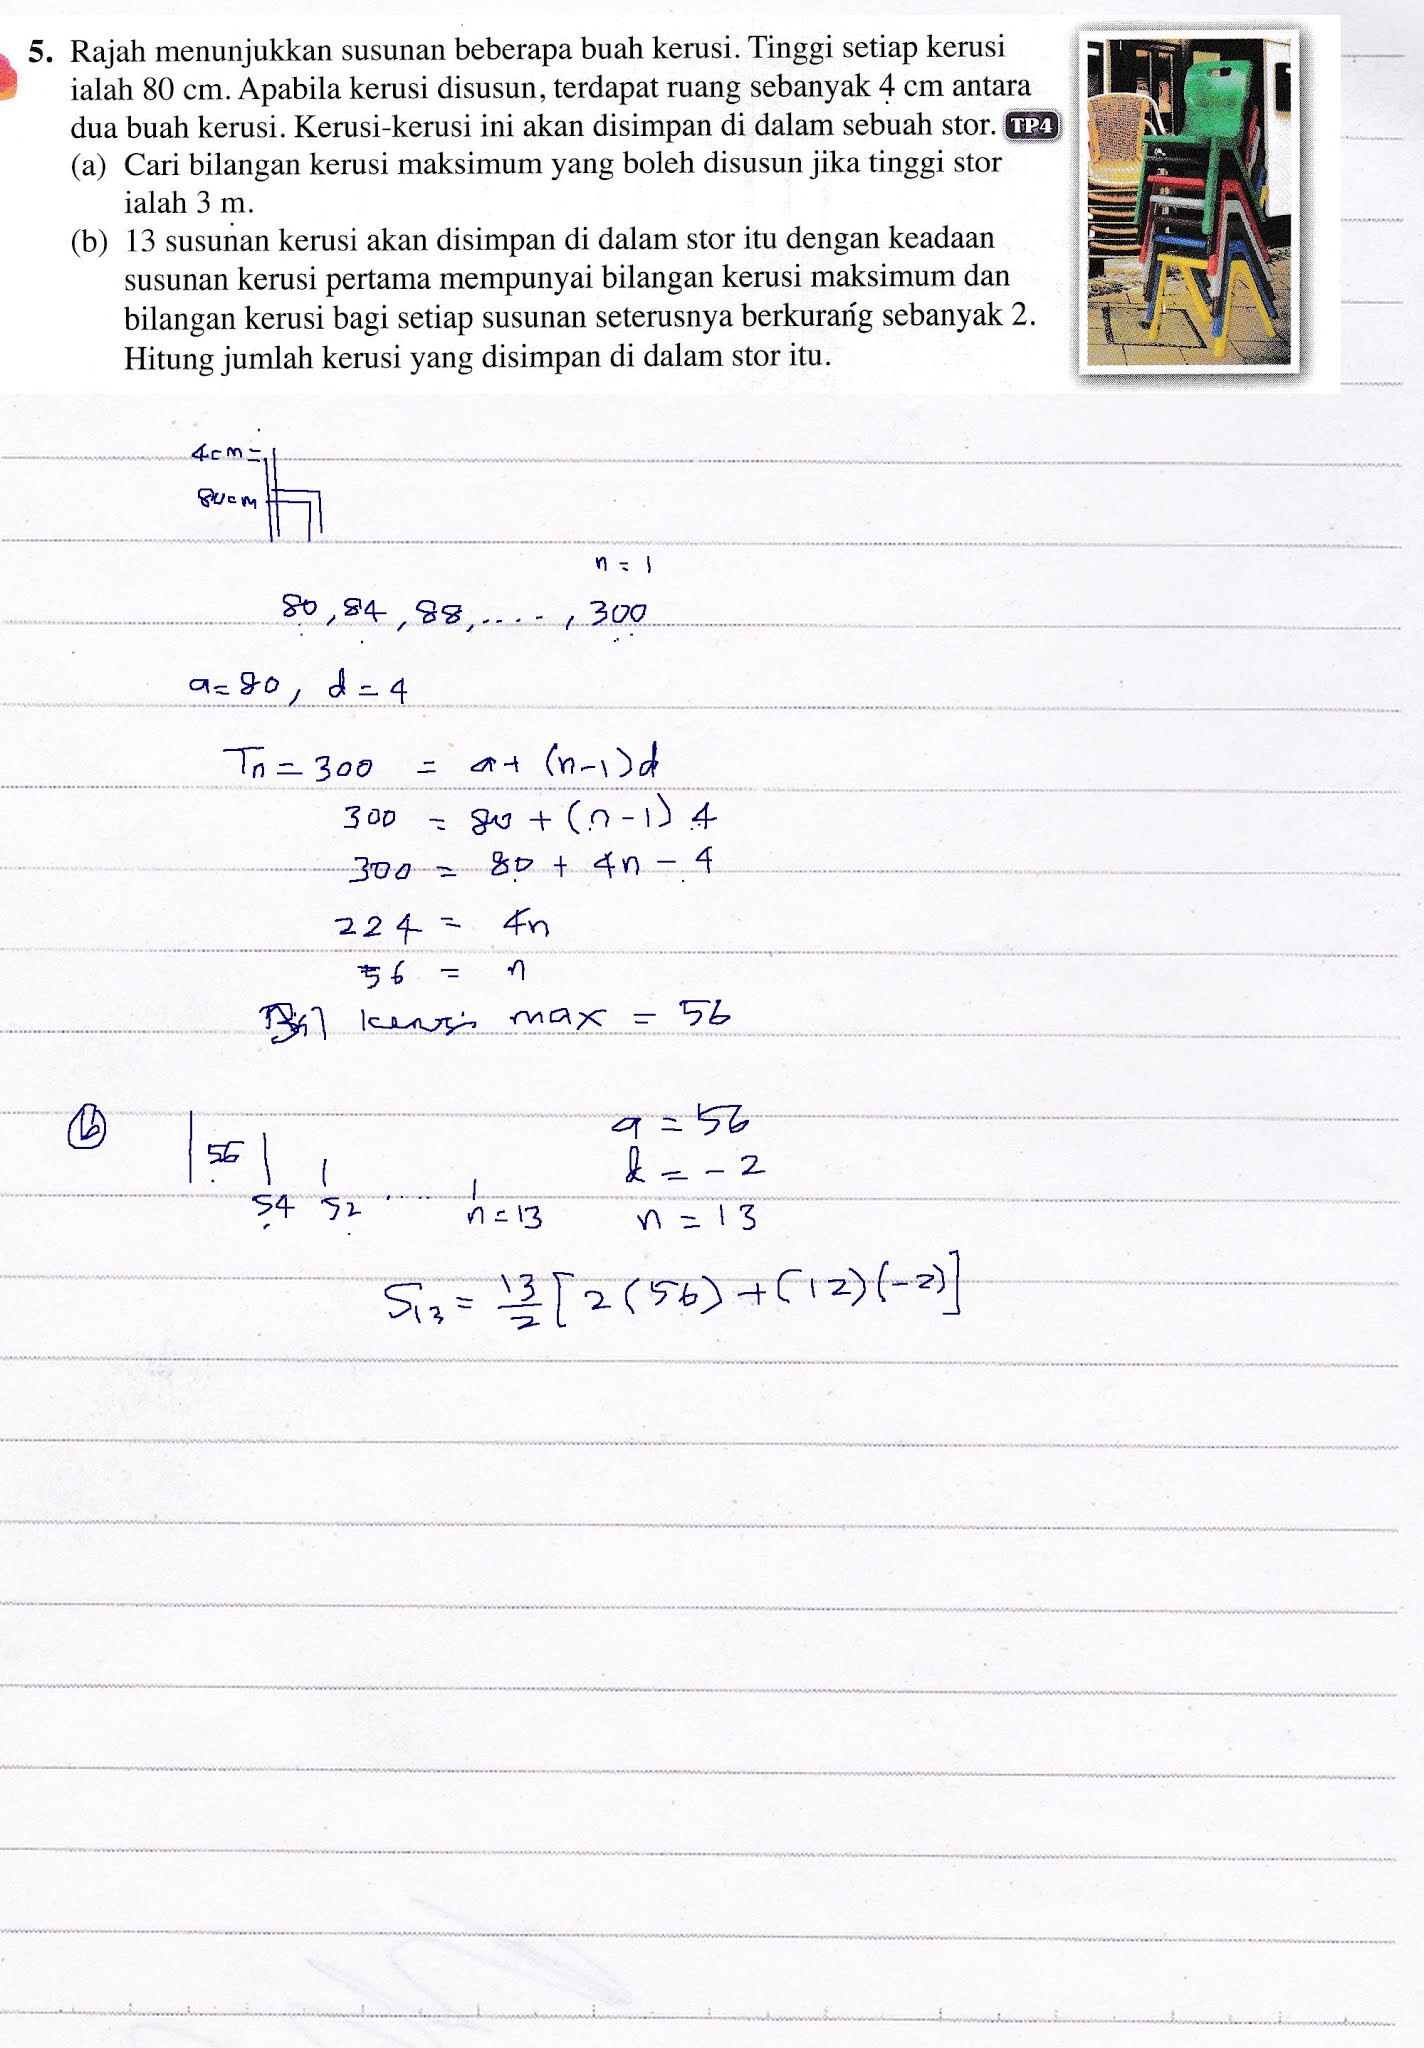 5. Rajah menunjukkan susunan beberapa buah kerusi. Tinggi setiap kerusi
ialah 80 cm. Apabila kerusi disusun, terdapat ruang sebanyak 4 cm antara
dua buah kerusi. Kerusi-kerusi ini akan disimpan di dalam sebuah stor. TP4
(a) Cari bilangan kerusi maksimum yang boleh disusun jika tinggi stor
ialah 3 m.
(b) 13 susunan kerusi akan disimpan di dalam stor itu dengan keadaan
susunan kerusi pertama mempunyai bilangan kerusi maksimum dan
bilangan kerusi bagi setiap susunan seterusnya berkurang sebanyak 2.
Hitung jumlah kerusi yang disimpan di dalam stor itu.
4cm =
80cm
n = 1
80, 84, 88, ...., 300
a = 80, d = 4
Tn = 300 = a + (n-1)d
300 = 80 + (n-1) 4
300 = 80 + 4n - 4
224 = 4n
56 = n
Bil kerusi max = 56
(b) |56| a = 56
d = -2
54 52 .... n = 13 n = 13
S13 = 13/2 [2(56) + (12)(-2)]